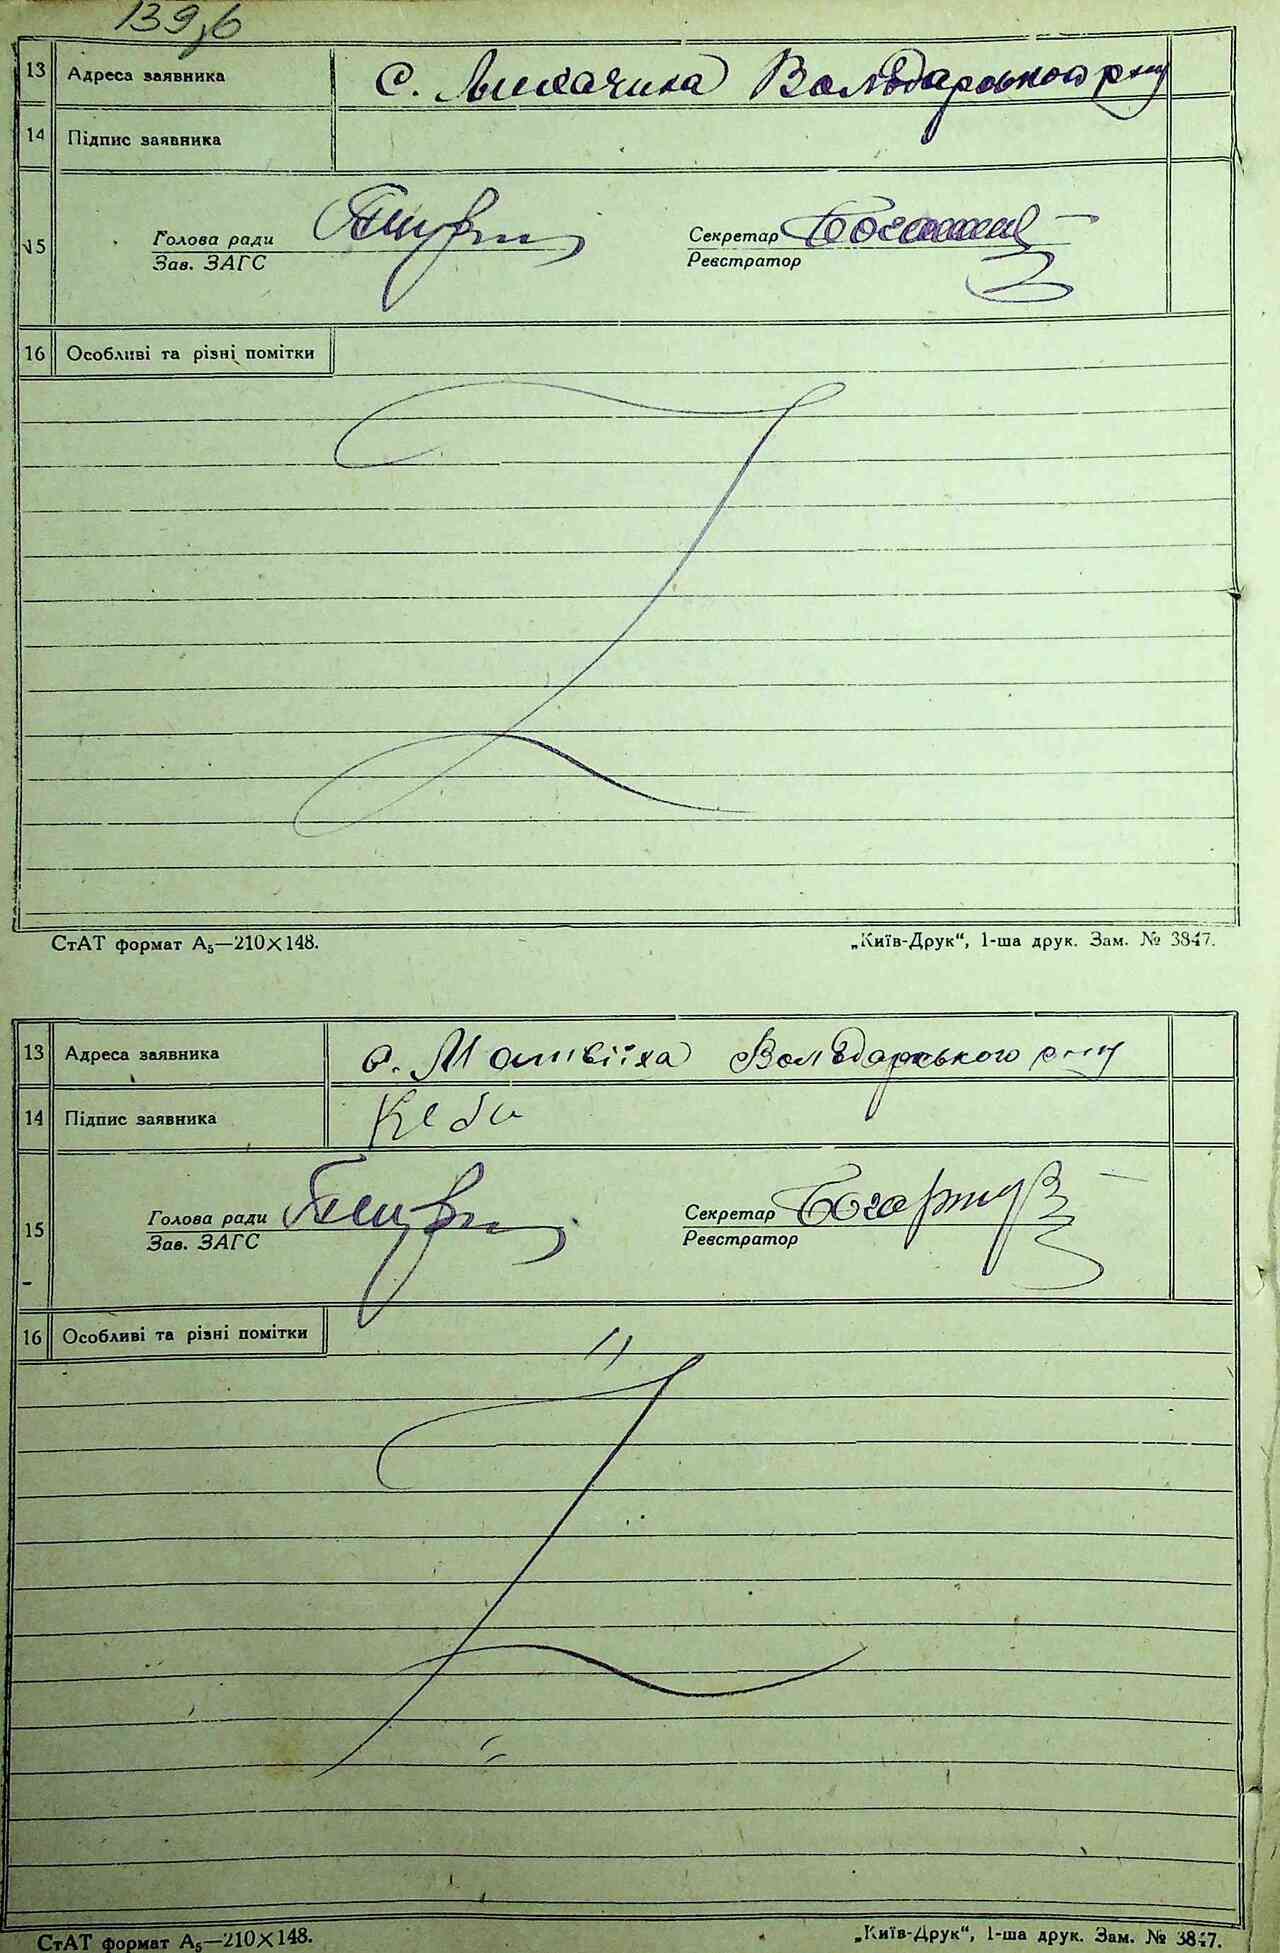 139,б
13 Адреса заявника с. Лихачиха Вольдарського р-ну
14 Підпис заявника
15 Голова ради Секретар
Зав. ЗАГС Реєстратор
16 Особливі та різні помітки
СтАТ формат А₅—210×148. „Київ-Друк“, 1-ша друк. Зам. № 3847.
13 Адреса заявника с. Матвіїха Вольдарського р-ну
14 Підпис заявника
15 Голова ради Секретар
Зав. ЗАГС Реєстратор
16 Особливі та різні помітки
СтАТ формат А₅—210×148. „Київ-Друк“, 1-ша друк. Зам. № 3847.